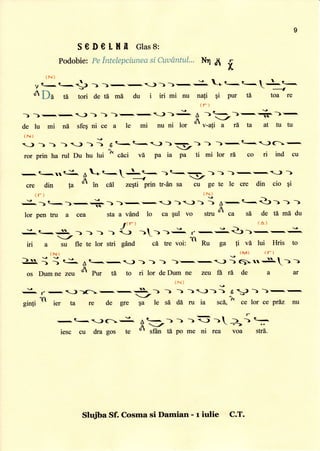 9
SEDELNA Glas 8:
Podobie: Pe Intelepciunea si Cuvântul...
Dă tă tori de tă mă du i iri mi nu nați și pur tă toa re
de lu mi nă sfeș ni ce a le mi nu ni lor v-ați a ră ta at tu tu
ror prin ha rul Du hu lui căci vă pa ia pa ti mi lor ră co ri ind cu
cre din ța în căl zești prin tr-ân sa cu ge te le cre din cio și
lor pen tru a cea sta a vând lo ca șul vo stru ca să de tă mă du
iri a su fle te lor stri gând că tre voi: Ru ga ți vă lui Hris to
os Dum ne zeu Pur tă to ri lor de Dum ne zeu fă ră de a ar
ginți ier ta re de gre șa le să dă ru ia scă, ce lor ce prăz nu
iesc cu dra gos te sfân tă po me ni rea voa stră.
Slujba Sf. Cosma si Damian - 1 iulie C.T.